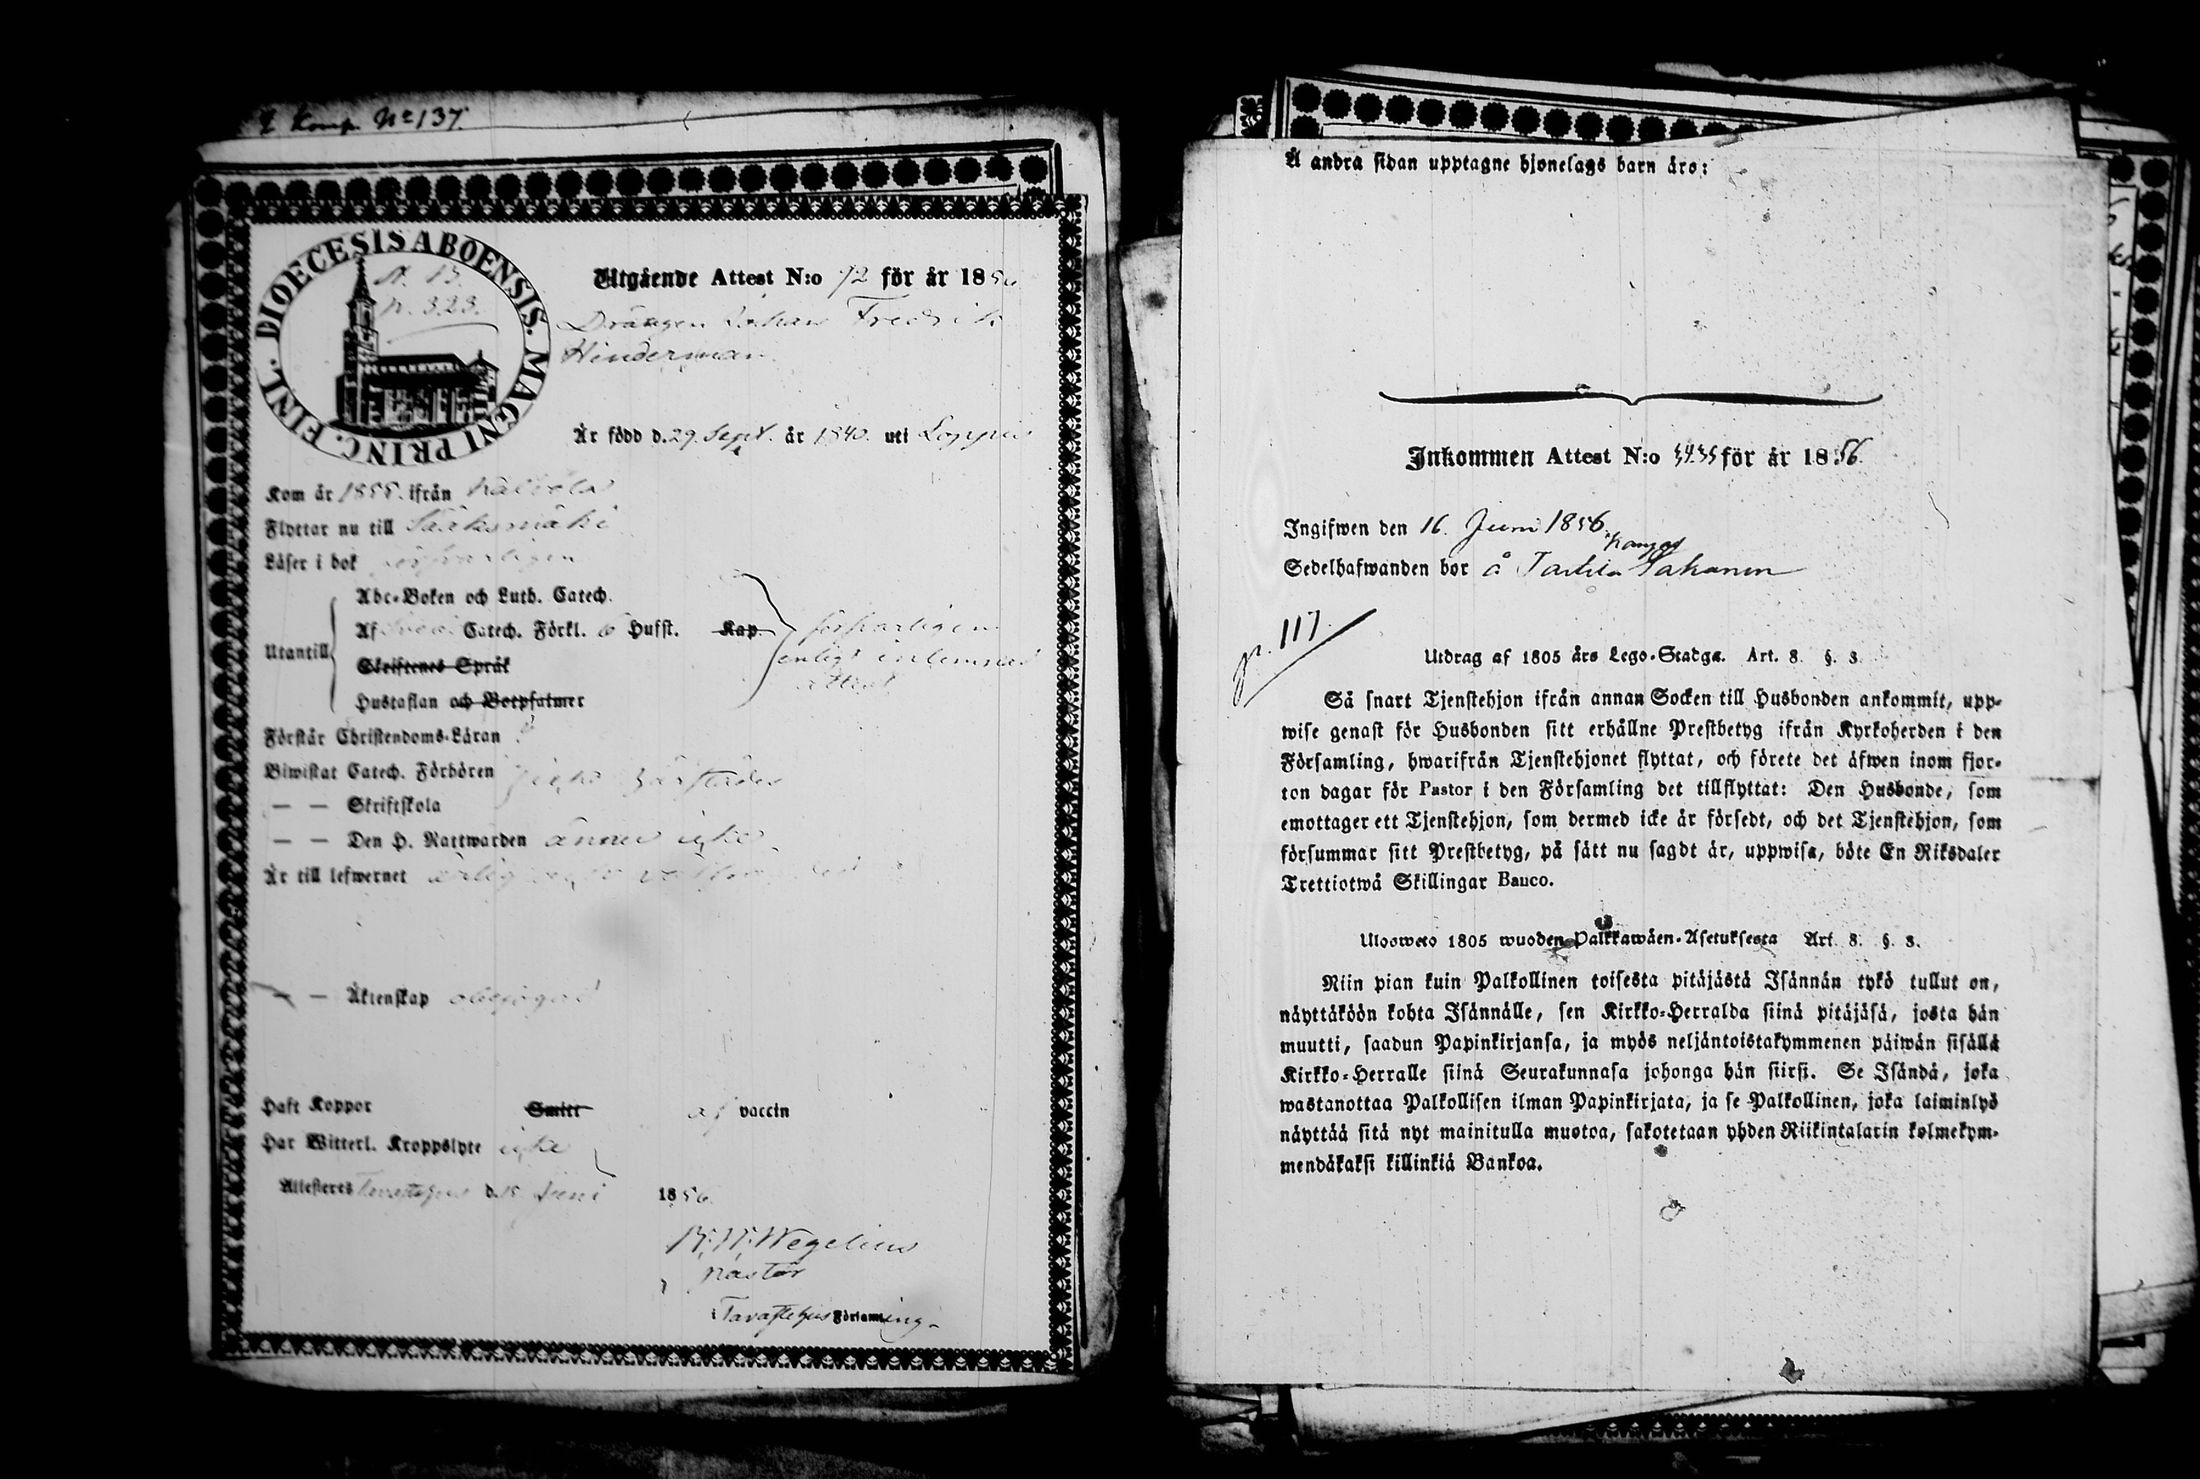 Komp. No 137.
DIOECESIS ABOENSIS. MAGNI PRINC. FINL.
N. 13.
p. 323.
Utgående Attest N:o 72 för år 1856
Drängen Johan Fredrik
Hinderman
Är född d. 29 Sept. år 1840. uti Loppis
Kom år 1855. ifrån Kalvola
Flyttar nu till Sääksmäki
Läser i bok försvarligen
Abc-Boken och Luth. Catech.
Utantill
Af Svebi Catech. Förkl. 6 Hufst. Kap.
Skriftenes Språk
Hustaflan och Botpsalmer
försvarligen
enligt inlemnad
attest
Förstår Christendoms-Läran
Biwistat Catech. Förhören icke härstädes
— — Skriftskola
— — Den H. Nattwarden ännu icke
Är till lefwernet ärlig
— — Äktenskap obefogad
Haft Koppor Smitt af vaccin
Har Witterl. Kroppslyte icke
Attesteres Tavastehus d. 15 Juni 1856.
Wegelius
Pastor
Tavastehus Församling.
Å andra sidan upptagne hjonelags barn äro:
Inkommen Attest N:o för år 1856.
Ingifwen den 16. Juni 1856.
Sedelhafwanden bor å
p. 117.
Utdrag af 1805 års Lego-Stadga. Art. 8. §. 3.
Så snart Tjenstehjon ifrån annan Socken till Husbonden ankommit, upp-
wise genast för Husbonden sitt erhållne Prestbetyg ifrån Kyrkoherden i den
Församling, hwarifrån Tjenstehjonet flyttat, och förete det äfwen inom fjor-
ton dagar för Pastor i den Församling det tillflyttat: Den Husbonde, som
emottager ett Tjenstehjon, som dermed icke är försedt, och det Tjenstehjon, som
försummar sitt Prestbetyg, på sätt nu sagdt är, uppwisa, böte En Riksdaler
Trettiotwå Skillingar Banco.
Ulosweto 1805 wuoden Palkkawäen-Asetuksesta Art. 8. §. 3.
Niin pian kuin Palkollinen toisesta pitäjästä Isännän tykö tullut on,
näyttäköön kohta Isännälle, sen Kirkko-Herralda siinä pitäjäsä, josta hän
muutti, saadun Papinkirjansa, ja myös neljäntoistakymmenen päiwän sisällä
Kirkko-Herralle siinä Seurakunnasa johonga hän siirsi. Se Isändä, joka
wastanottaa Palkollisen ilman Papinkirjata, ja se Palkollinen, joka laiminlyö
näyttää sitä nyt mainitulla muotoa, sakotetaan yhden Riikintalarin kolmekym-
mendäkaksi killinkiä Bankoa.